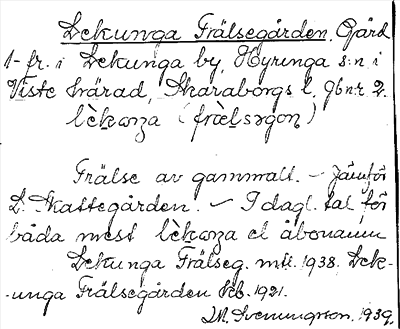 Lekunga Frälsegården. Gård
1-fr. i Lekunga by, Hyringa s:n i
Viste härad, Skaraborgs l. Gbnr 2.
lèkωŋa (frœ̀lsəgoɳ)
Frälse av gammalt. – Jämför
L. Skattegården. – I dagl. tal för
båda mest lèkωŋa el åbonamn
Lekunga Frälseg. mtl. 1938. Lek-
-unga Frälsegården Kb. 1921.
1939.